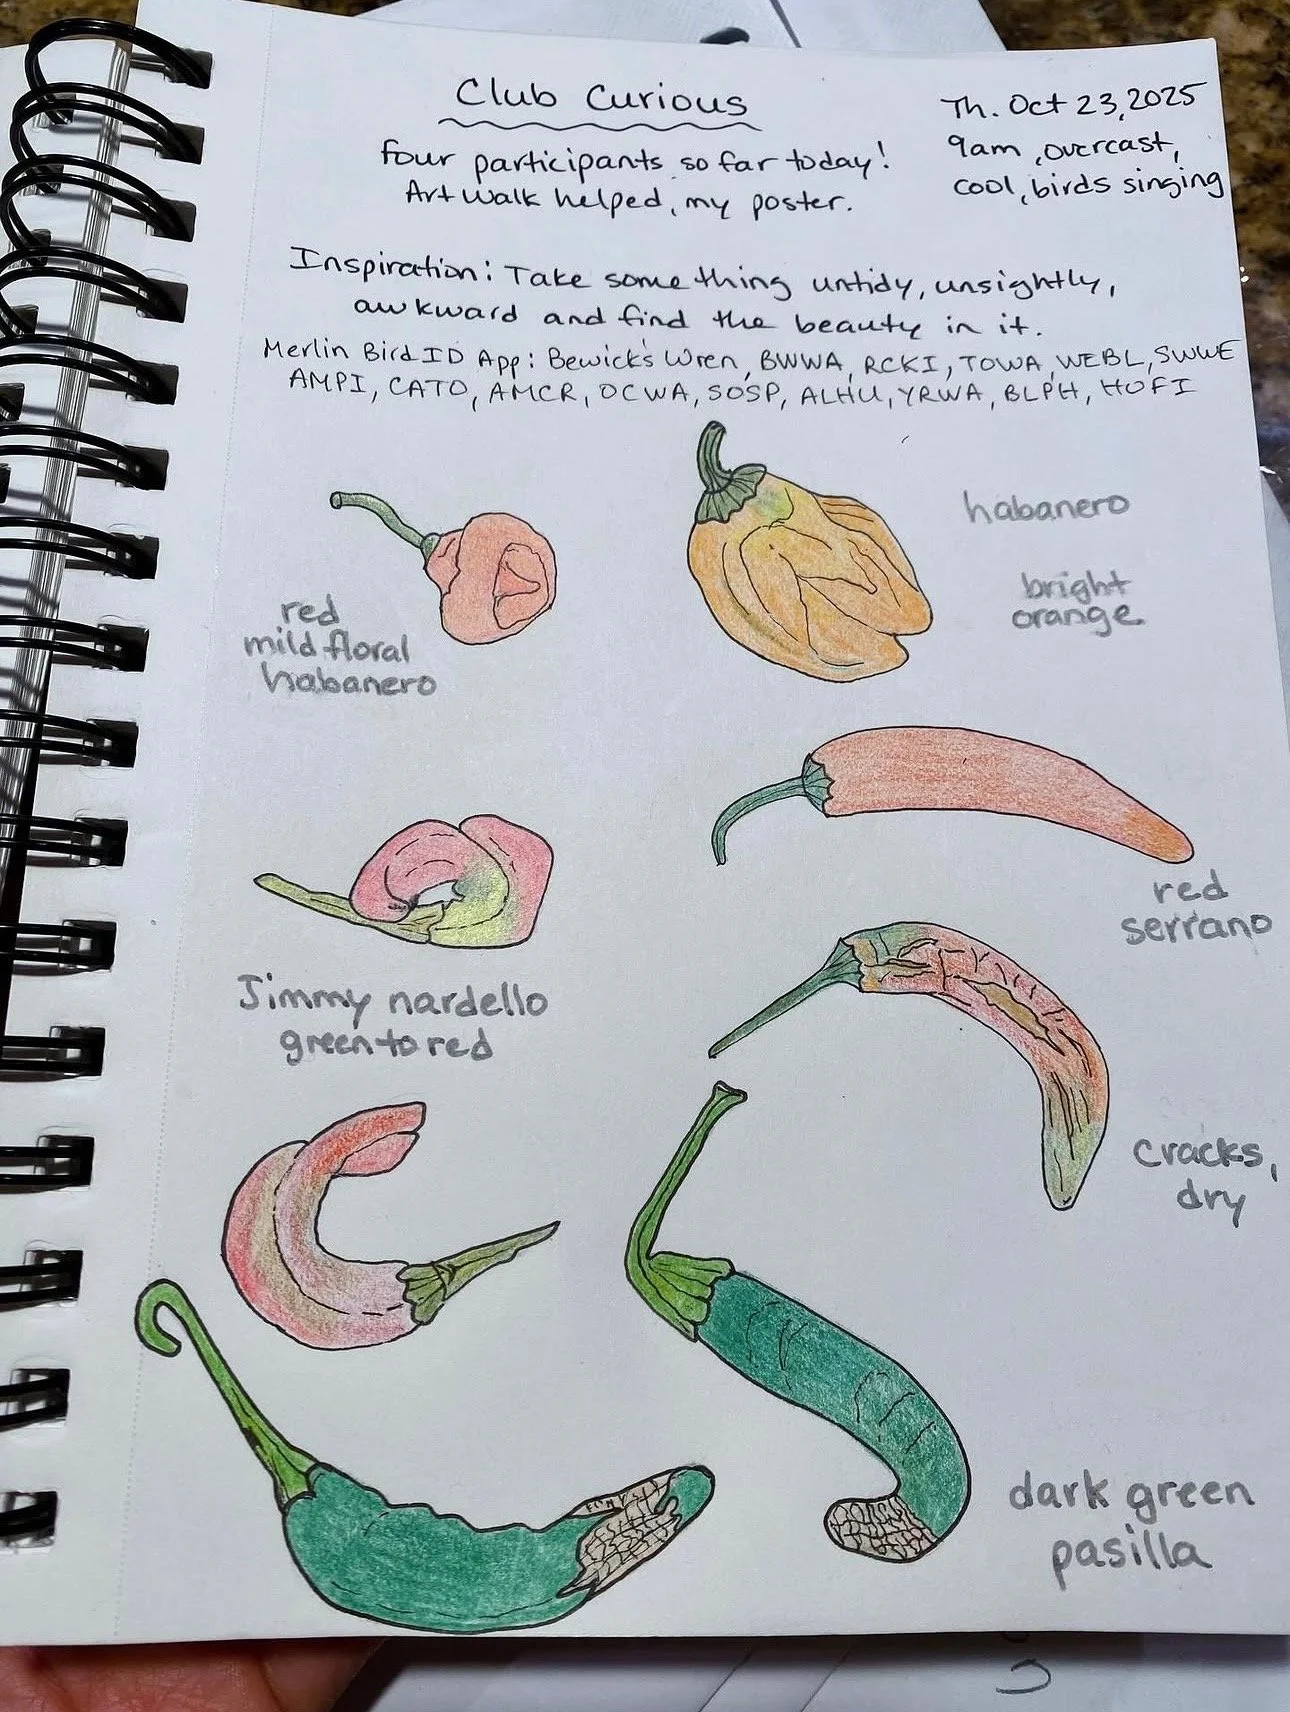 Club Curious
Th. Oct 23, 2025
9am, overcast,
cool, birds singing
Four participants so far today!
Art Walk helped, my poster.
Inspiration: Take something untidy, unsightly,
awkward and find the beauty in it.
Merlin Bird ID App: Bewick's Wren, BWWA, RCKI, TOWA, WEBL, SWWE
AMPI, CATO, AMCR, OCWA, SOSP, ALHU, YRWA, BLPH, HOFI
habanero
bright
orange
red
mild floral
habanero
red
serrano
Jimmy nardello
green to red
cracks,
dry
dark green
pasilla